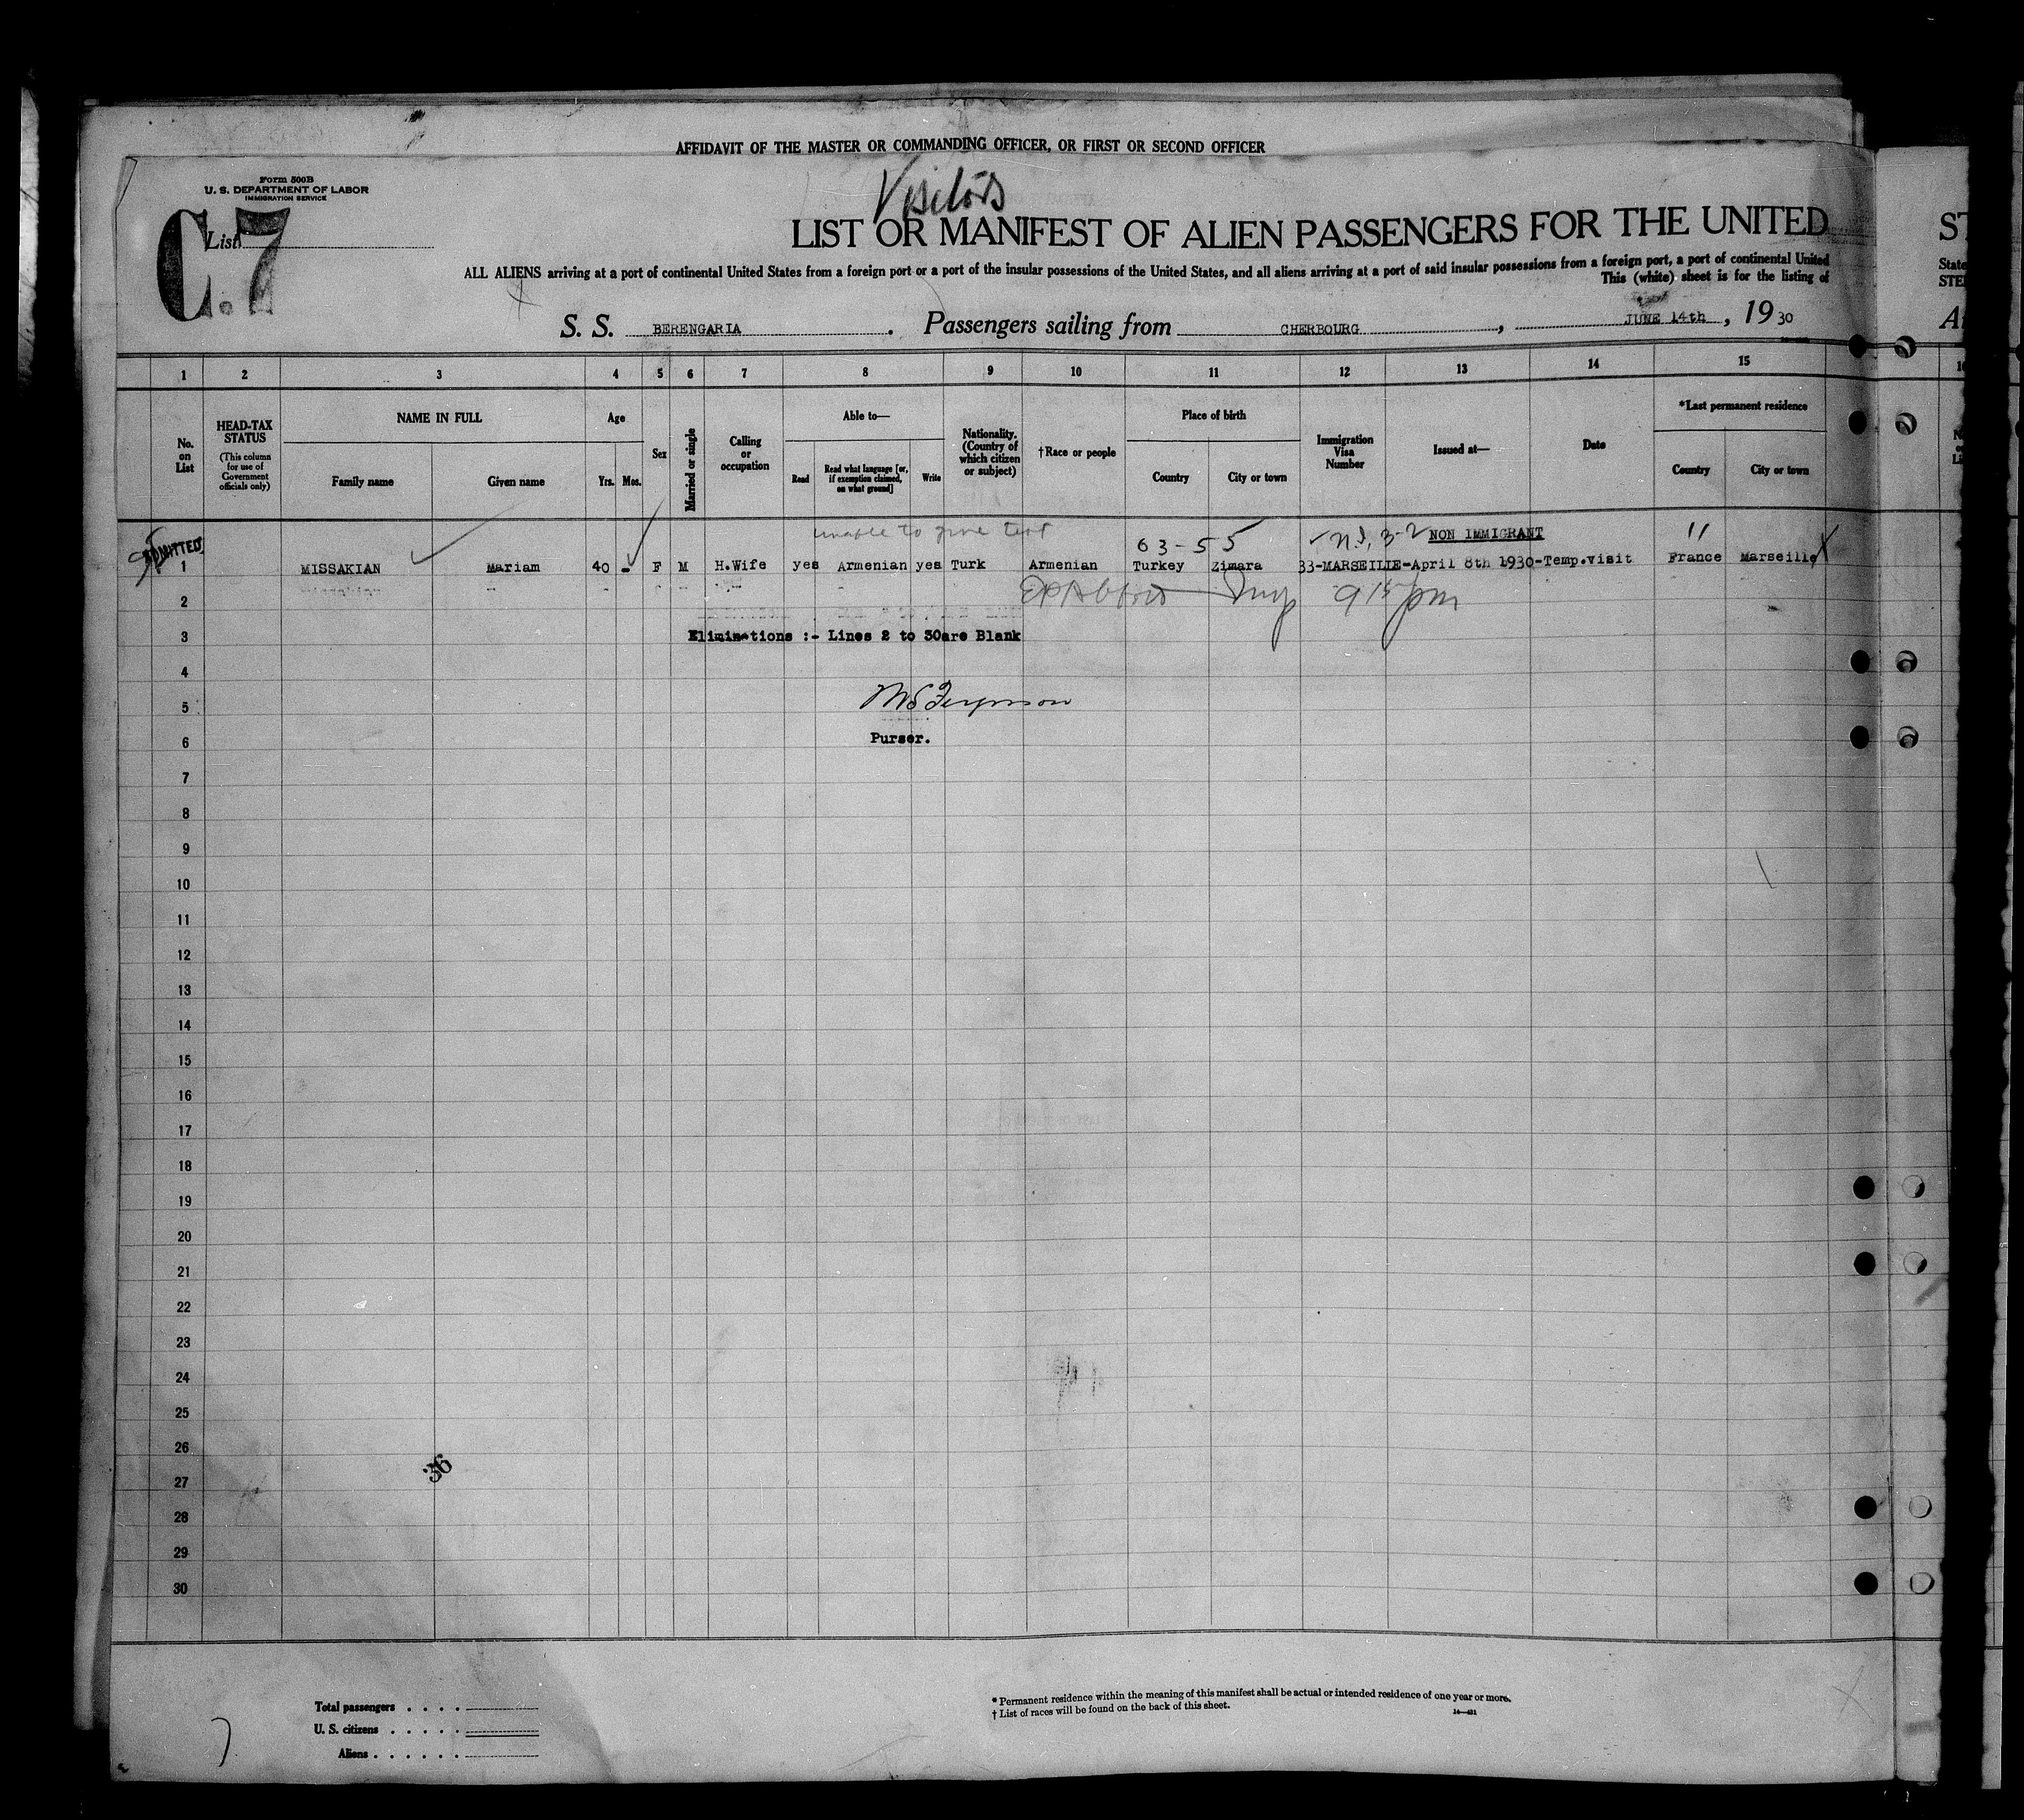 AFFIDAVIT OF THE MASTER OR COMMANDING OFFICER, OR FIRST OR SECOND OFFICER
Form 500B
U. S. DEPARTMENT OF LABOR
IMMIGRATION SERVICE
C.7
List
Visitors
LIST OR MANIFEST OF ALIEN PASSENGERS FOR THE UNITED
ALL ALIENS arriving at a port of continental United States from a foreign port or a port of the insular possessions of the United States, and all aliens arriving at a port of said insular possessions from a foreign port, a port of continental United
This (white) sheet is for the listing of
S. S. BERENGARIA. Passengers sailing from CHERBOURG, JUNE 14th, 1930
1 2 3 4 5 6 7 8 9 10 11 12 13 14 15
No. on List
HEAD-TAX STATUS
(This column for use of Government officials only)
NAME IN FULL
Family name Given name
Age
Yrs. Mos.
Sex
Married or single
Calling or occupation
Able to—
Read Read what language [or, if exemption claimed, on what ground] Write
Nationality. (Country of which citizen or subject)
†Race or people
Place of birth
Country City or town
Immigration Visa Number
Issued at—
Date
*Last permanent residence
Country City or town
unable to give test
63-55 NON IMMIGRANT
ADMITTED
1 MISSAKIAN Mariam 40 - F M H.Wife yes Armenian yes Turk Armenian Turkey Zimara 33-MARSEILLE-April 8th 1930-Temp.visit France Marseille
2
3 Eliminations :- Lines 2 to 30are Blank
4
5 Ferguson
6 Purser.
7
8
9
10
11
12
13
14
15
16
17
18
19
20
21
22
23
24
25
26
36
27
28
29
30
Total passengers
U. S. citizens
Aliens
* Permanent residence within the meaning of this manifest shall be actual or intended residence of one year or more.
† List of races will be found on the back of this sheet.
14—421